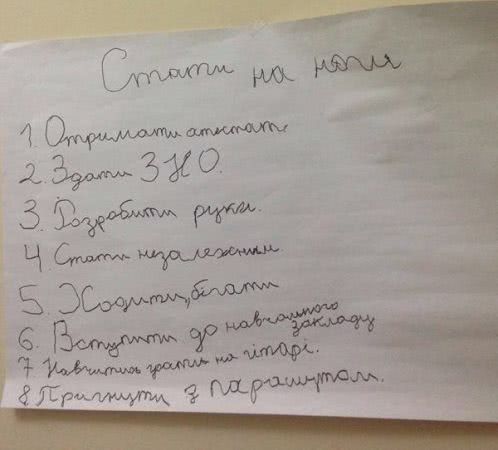 Стати на ноги
1. Отримати атестат.
2. Здати ЗНО.
3. Розробити руки.
4 Стати незалежним.
5. Ходити, бігати
6. Вступити до навчального закладу
7 Навчитись грати на гітарі.
8 Пригнути з парашутом.